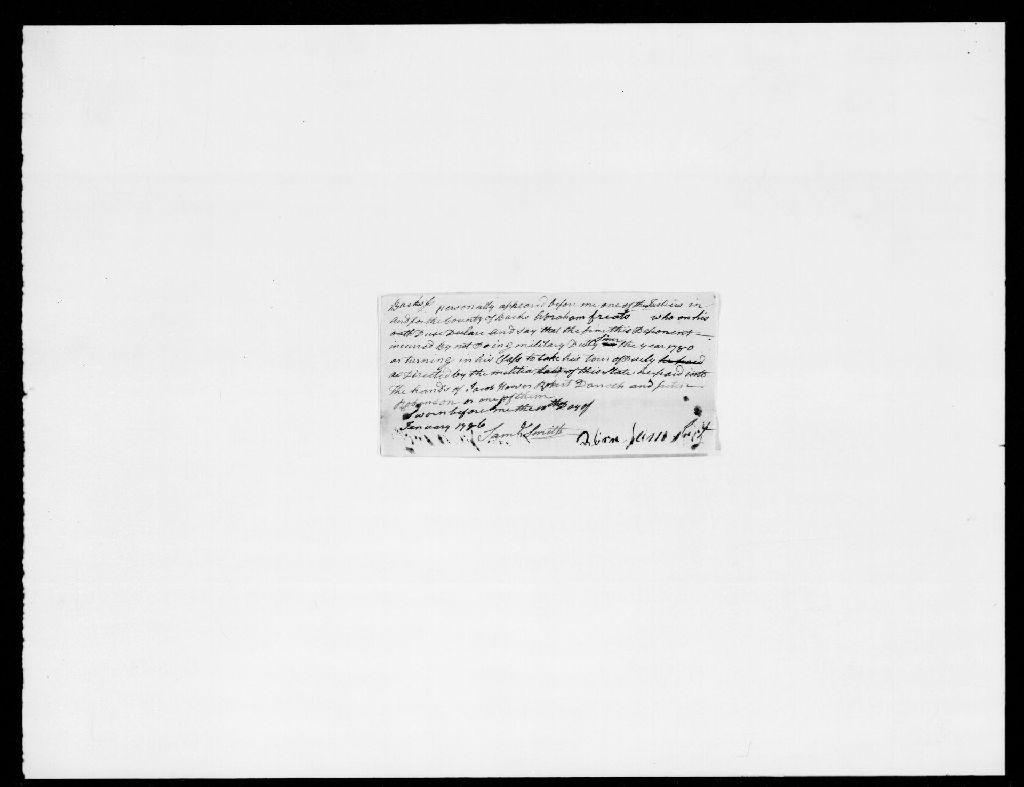 Bucks ss personally appeared before me one of the Justices in
and for the County of Bucks Abraham freats who on his
oath Dus Declare and say that the fine this Deponent
incured By not Doing military Duty Since the year 1780
or turning in his Class to take his tour of Duty he paid
as Directed by the militia Law of this State he paid into
the hands of Jacob and peter
Robinson or one of them
Sworn before me the Day of
January 1786
Saml Smith